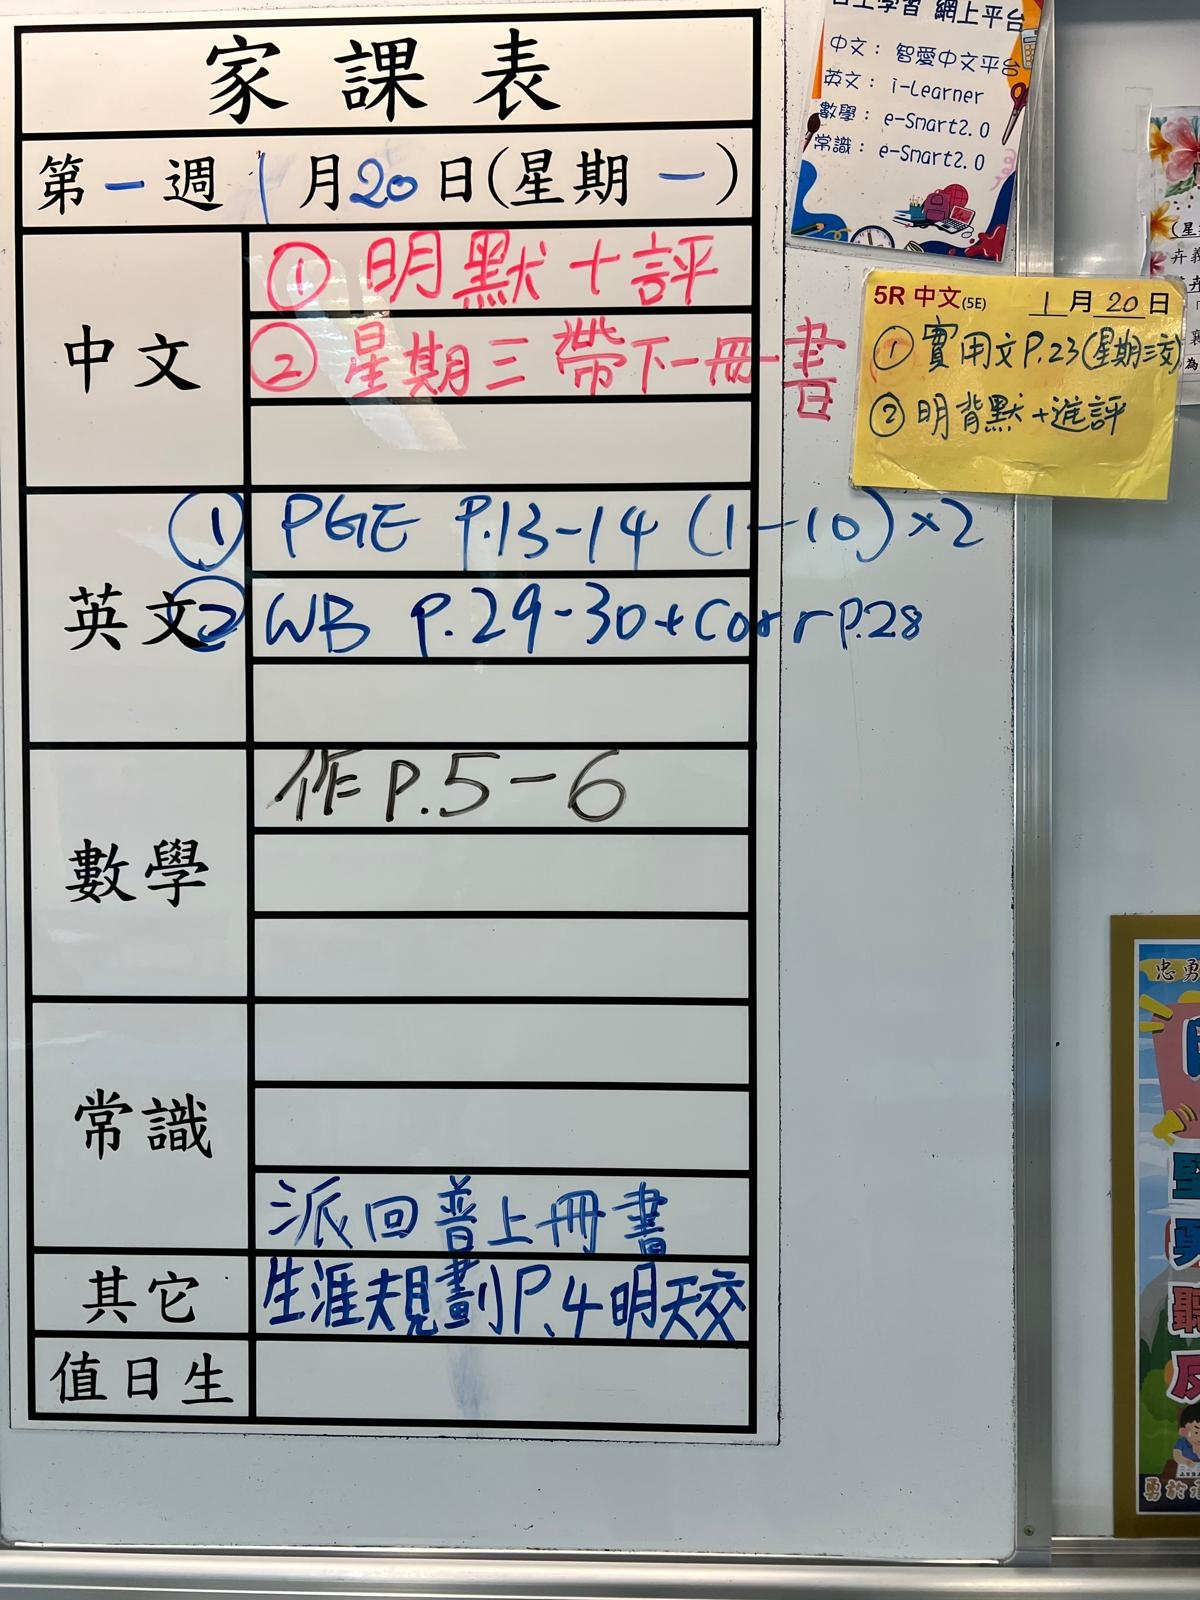 家課表
第一週 1月20日(星期一)
中文
① 明默＋評
② 星期三帶下一冊書
英文
① PGE P.13-14 (1-10)×2
② WB P.29-30+Corr P.28
數學
作P.5-6
常識
派回普上冊書
其它
生涯規劃P.4明天交
值日生
學習 網上平台
中文： 智愛中文平台
英文： i-Learner
數學： e-Smart2.0
常識： e-Smart2.0
5R 中文(5E) 1月20日
① 實用文P.23(星期三交)
② 明背默+進評
忠勇
勇於